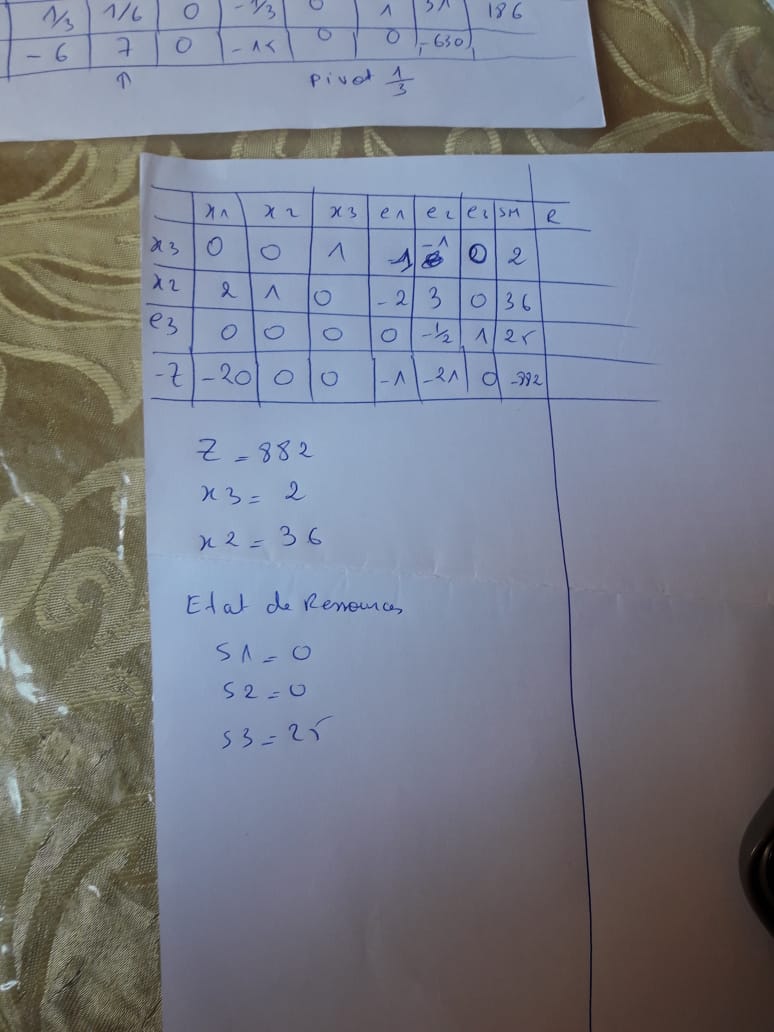 1/3 1/6 0 -1/3 0 1 31 186
-6 7 0 -15 0 0 -630
↑ pivot 1/3
x1 x2 x3 e1 e2 e3 SM R
x3 0 0 1 1 -1 0 2
x2 2 1 0 -2 3 0 36
e3 0 0 0 0 -1/2 1 25
-Z -20 0 0 -1 -21 0 -882
Z = 882
x3 = 2
x2 = 36
Etat de Ressources
S1 = 0
S2 = 0
S3 = 25